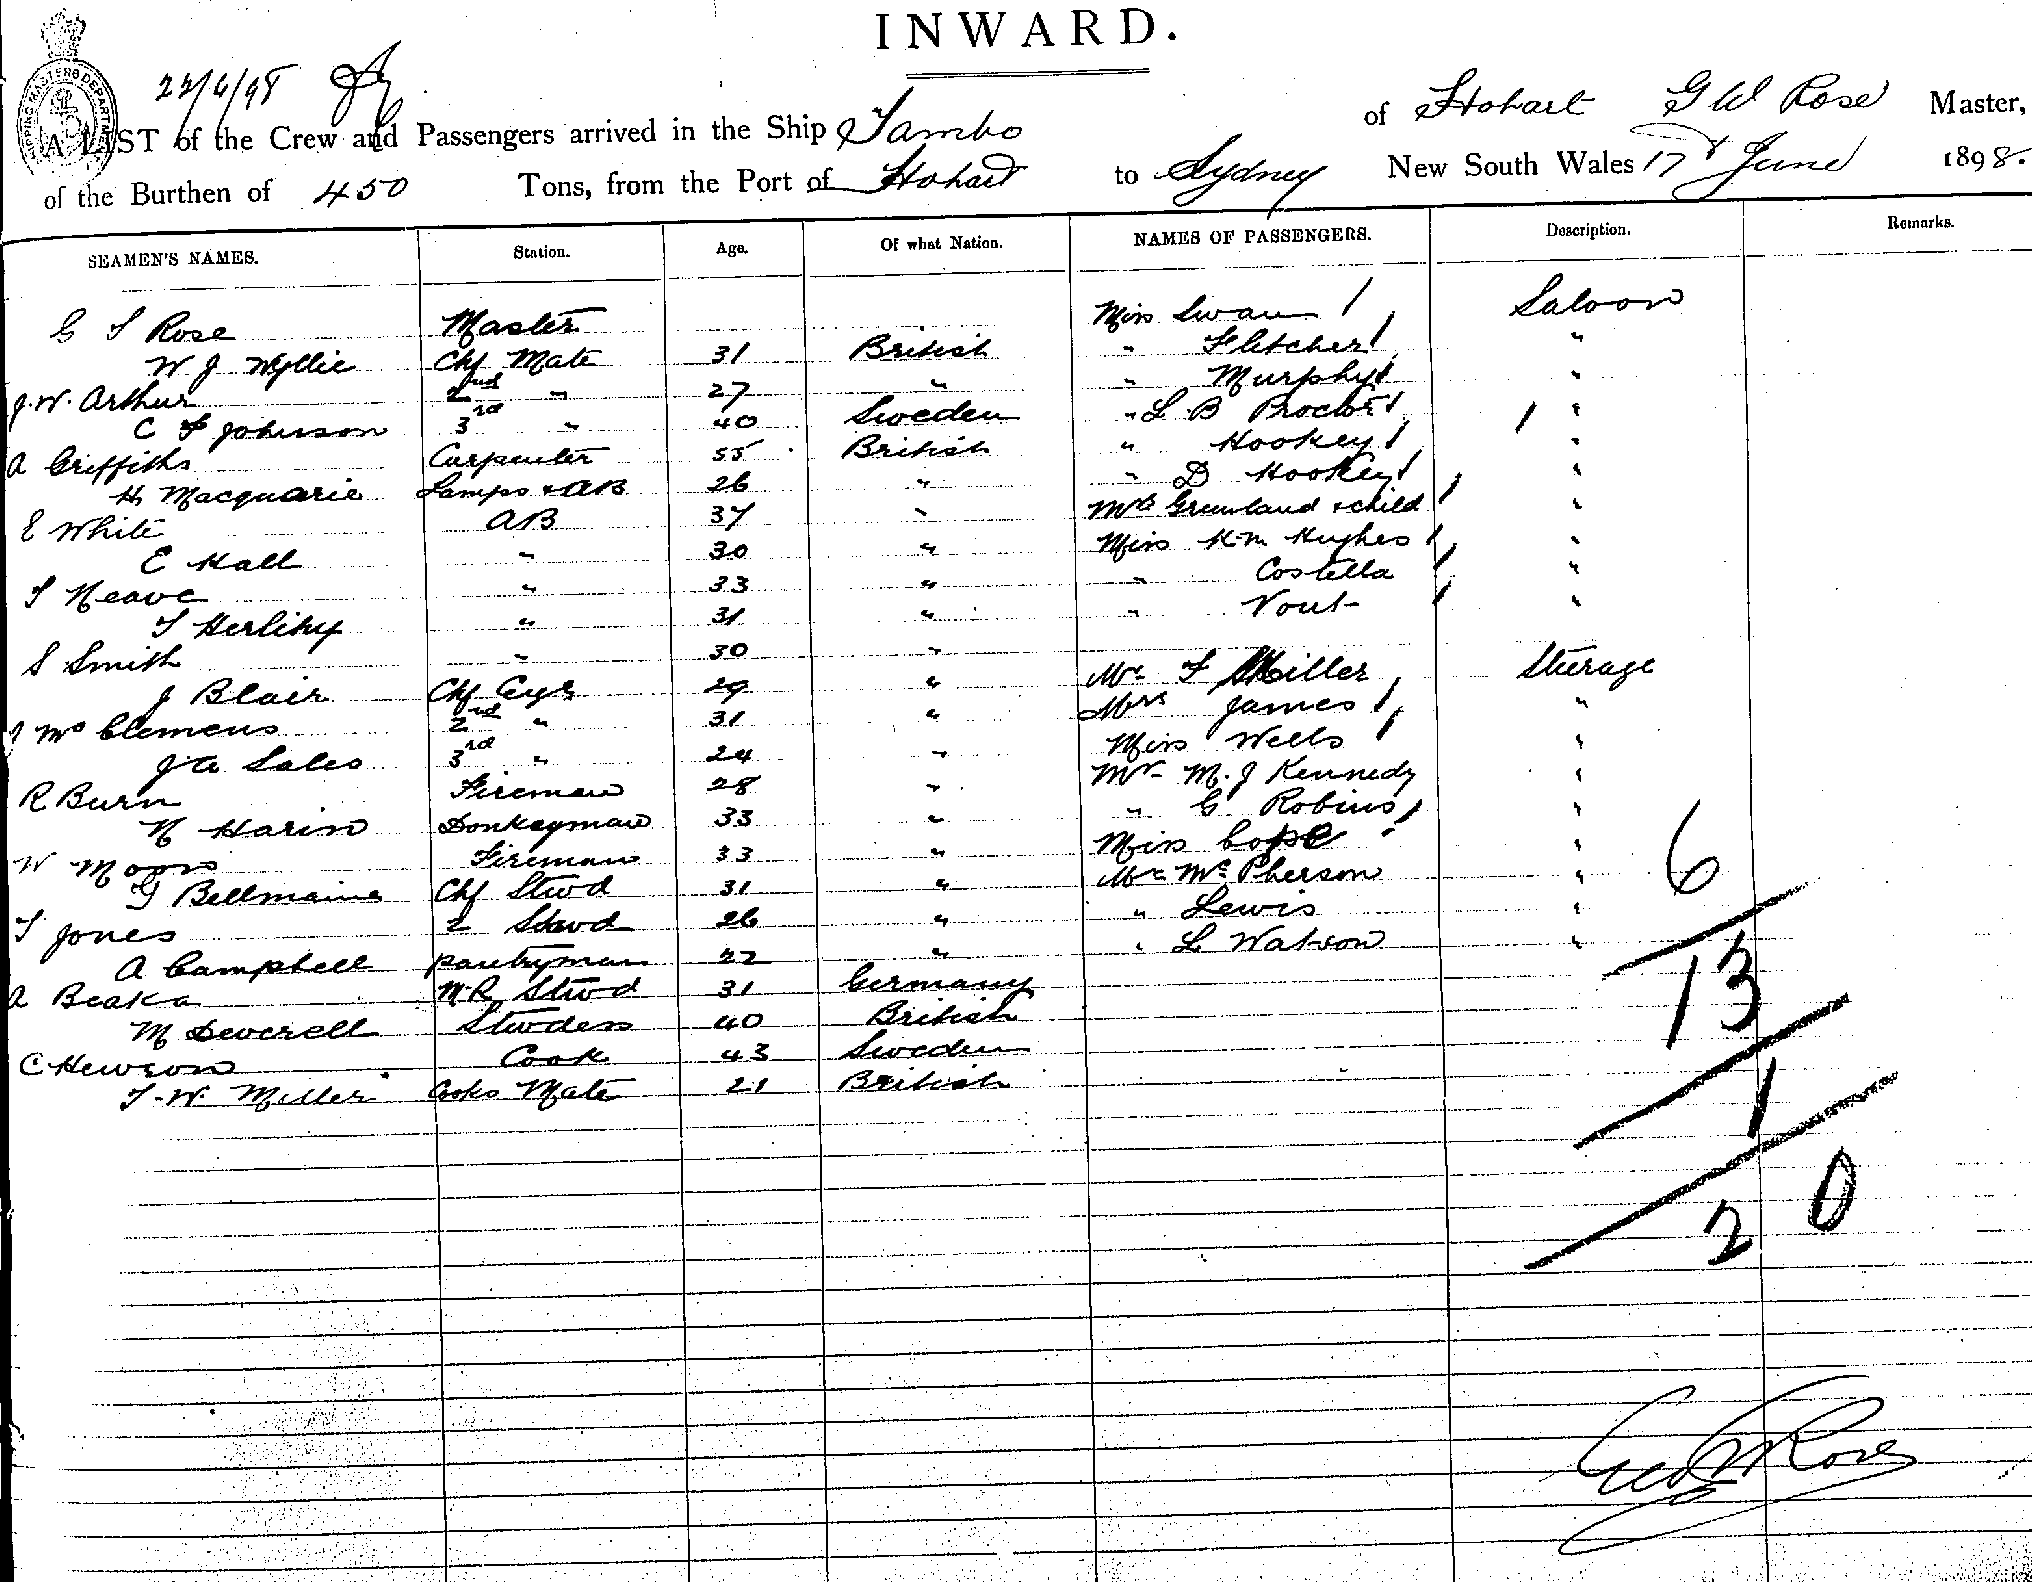 INWARD.
22/6/98
A LIST of the Crew and Passengers arrived in the Ship Tambo of Hobart G W Rose Master,
of the Burthen of 450 Tons, from the Port of Hobart to Sydney New South Wales 17 June 1898.
SEAMEN'S NAMES. Station. Age. Of what Nation. NAMES OF PASSENGERS. Description. Remarks.
G T Rose Master Miss Swan / Saloon
W J Wyllie Chf Mate 31 British " Fletcher / "
J. W. Arthur 2nd " 27 " " Murphy / "
C F Johnson 3rd " 40 Sweden " L B Proctor / / "
A Griffiths Carpenter 55 British " Hookey / "
H Macquarie Lamps + AB 26 " " D Hookey / "
E White AB 37 " Mrs Greenland + child / "
E Hall " 30 " Miss K. M. Hughes / "
T Neave " 33 " " Costella / "
T Herlihy " 31 " " Vout / "
S Smith " 30 "
J Blair Chf Eng 29 " Mr F Miller Sturage
J Mc Clemens 2nd " 31 " Mrs James / "
J A Sales 3rd " 24 " Miss Wells / "
R Burn Fireman 28 " Mr M. J Kennedy "
N Harin Donkeyman 33 " " G Robins "
W Moon Fireman 33 " Miss Cope / "
G Bellmaine Chf Stwd 31 " Mr McPherson "
T Jones 2 Stwd 26 " " Lewis "
A Campbell Pantryman 22 " " L Watson "
A Beaka M. R. Stwd 31 Germany
M Deverell Stwdess 40 British
C Hewson Cook 43 Sweden
T. W. Miller Cooks Mate 21 British
6
13
1
20
Geo W Rose